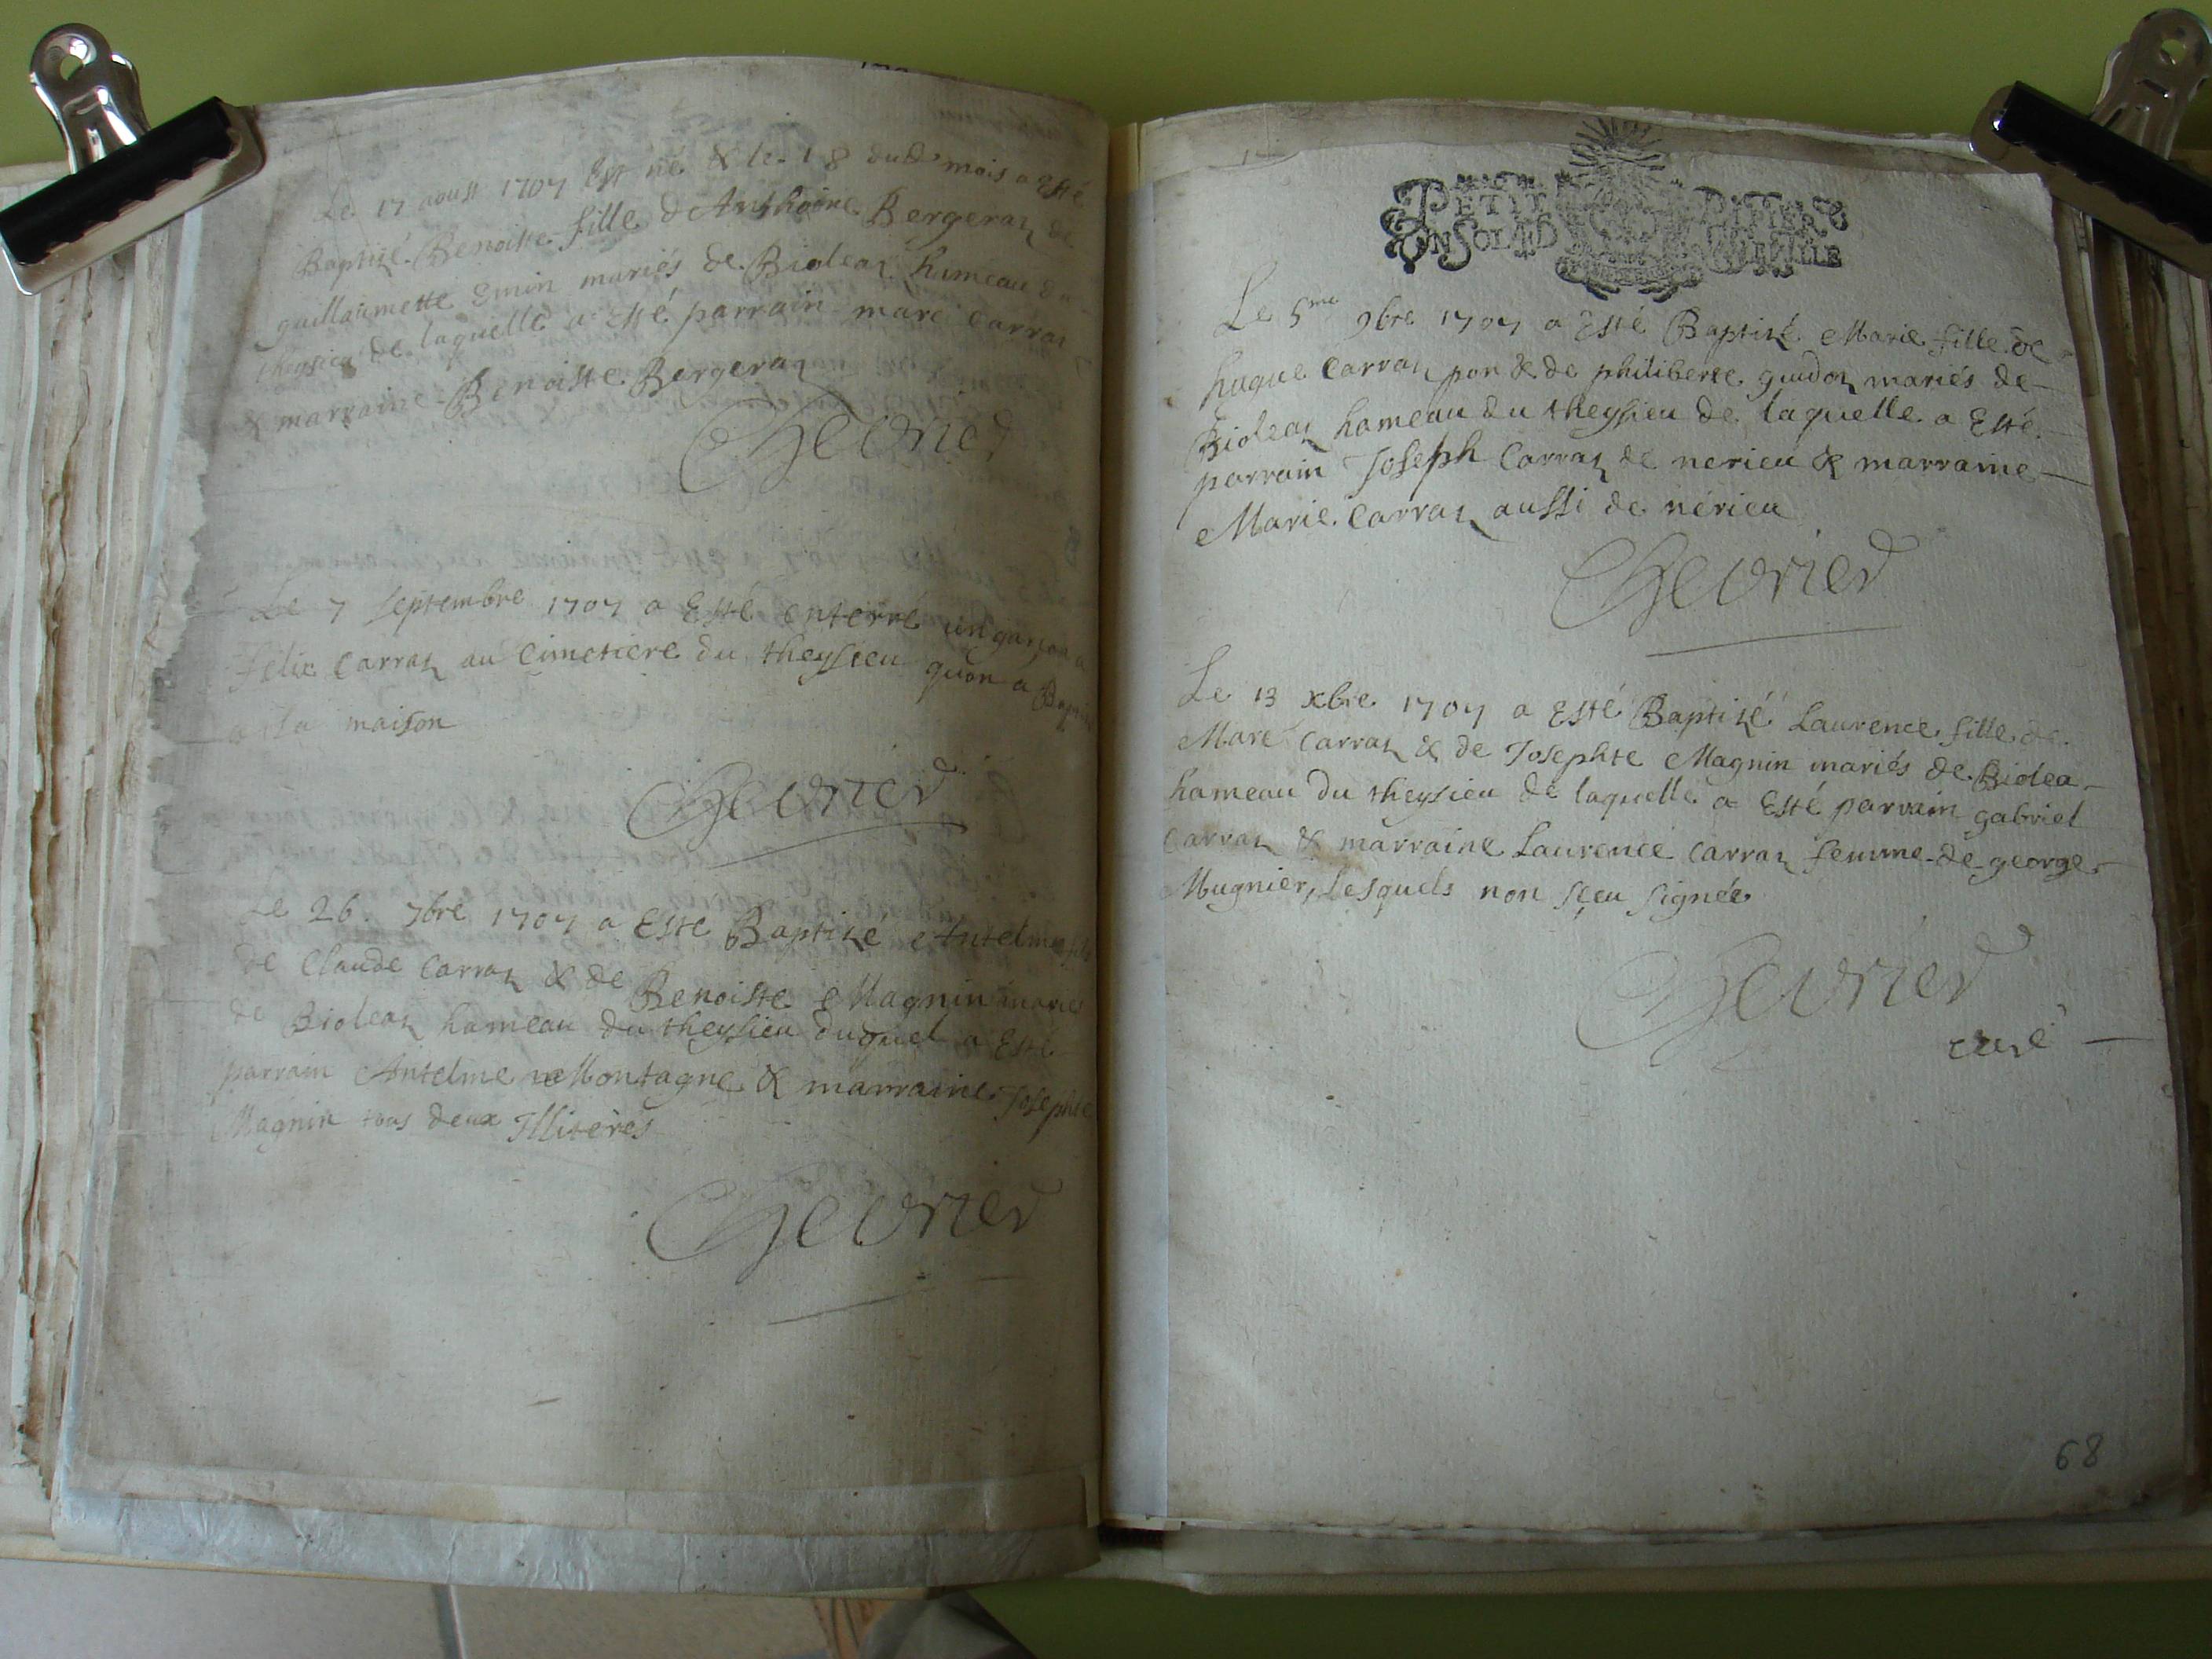 Le 17 aoust 1707 Est né & le 18 dud mois a Esté
Baptizé Benoiste fille d'Anthoine Bergeraz de
guillaumette Emin mariés de Bioleaz hameau du
theysieu de laquelle a Esté parrain marc Carraz
& marraine Benoiste Bergeraz
Chevrier
Le 7 septembre 1707 a Esté enterré un garçon a
félix Carraz au Cimetiere du theysieu quon a
a la maison
Chevrier
Le 26 7bre 1707 a Esté Baptizé Antelme fils
de Claude Carraz & de Benoiste Magnin mariés
de Bioleaz hameau du theysieu duquel a Esté
parrain Antelme Montagne & marraine Josephte
Magnin tous deux Illiterés
Chevrier
PETIT PAPIER
UN SOL 4 D LA FEUILLE
Le 5me 9bre 1707 a Esté Baptizé Marie fille de
hugue Carraz pon & de philiberte guidoz mariés de
Bioleaz hameau du theysieu de laquelle a Esté
parrain Joseph Carraz de nerieu & marraine
Marie Carraz aussi de nérieu
Chevrier
Le 13 xbre 1707 a Esté Baptizé Laurence fille de
Marc Carraz & de Josephte Magnin mariés de Biolea
hameau du theysieu de laquelle a Esté parrain gabriel
Carraz & marraine Laurence Carraz femme de george
Mugnier, Lesquels non sçeu signée
Chevrier
curé
68